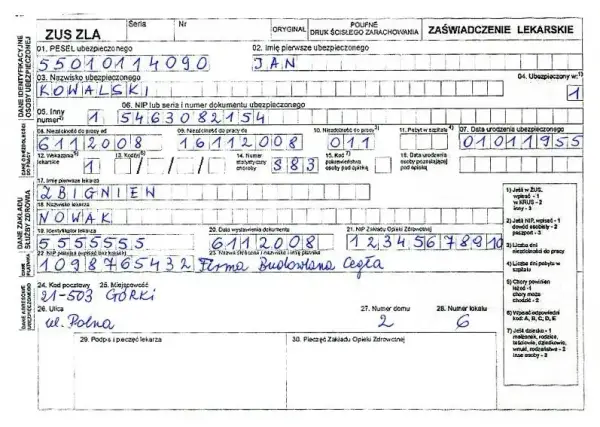 ZUS ZLA Seria Nr ORYGINAŁ POUFNE DRUK ŚCISŁEGO ZARACHOWANIA ZAŚWIADCZENIE LEKARSKIE
DANE IDENTYFIKACYJNE OSOBY UBEZPIECZONEJ
01. PESEL ubezpieczonego 02. Imię pierwsze ubezpieczonego
55010114090 JAN
03. Nazwisko ubezpieczonego 04. Ubezpieczony w:1)
KOWALSKI 1
05. Inny numer2) 06. NIP lub seria i numer dokumentu ubezpieczonego
1 5463082154
08. Niezdolność do pracy od 09. Niezdolność do pracy do 10. Niezdolność do pracy3) 11. Pobyt w szpitalu4) 07. Data urodzenia ubezpieczonego
6112008 16112008 011 01011955
12. Wskazania5) lekarskie 13. Kod(y)6) 14. Numer statystyczny choroby 15. Kod7) pokrewieństwa osoby pod opieką 16. Data urodzenia osoby pozostającej pod opieką
1 / / / S83
DANE ZAKŁADU SŁUŻBY ZDROWIA
17. Imię pierwsze lekarza
ZBIGNIEW
18. Nazwisko lekarza
NOWAK
19. Identyfikator lekarza 20. Data wystawienia dokumentu 21. NIP Zakładu Opieki Zdrowotnej
5555555 6112008 12345678910
22. NIP płatnika (wpisać bez kresek) 23. Nazwa (skrócona) / nazwisko i imię płatnika
1098765432 Firma Budowlana Cegła
DANE ADRESOWE UBEZPIECZONEGO
24. Kod pocztowy 25. Miejscowość
21-503 GÓRKI
26. Ulica 27. Numer domu 28. Numer lokalu
ul. Polna 2 6
29. Podpis i pieczęć lekarza 30. Pieczęć Zakładu Opieki Zdrowotnej
1) Jeśli w ZUS, wpisać - 1
w KRUS - 2
inny - 3
2) Jeśli NIP, wpisać - 1
dowód osobisty - 2
paszport - 3
3) Liczba dni niezdolności do pracy
4) Liczba dni pobytu w szpitalu
5) Chory powinien leżeć - 1
chory może chodzić - 2
6) Wpisać odpowiedni kod: A, B, C, D, E
7) Jeśli dziecko - 1
małżonek, rodzice, teściowie, dziadkowie, wnuki, rodzeństwo - 2
inne osoby - 3